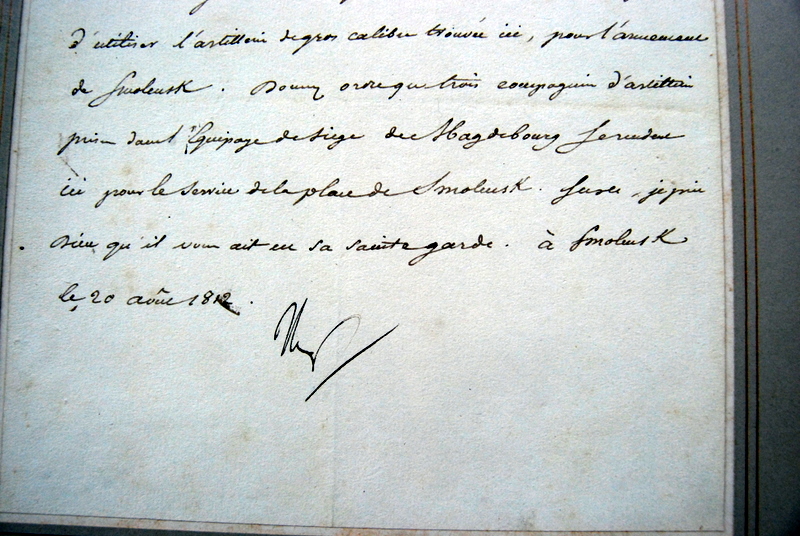 d'utiliser l'artillerie de gros calibre trouvée ici, pour l'armement
de Smolensk. Donnez ordre que trois compagnies d'artillerie
prises dans l'Equipage de Siege de Magdebourg se rendent
ici pour le service de la place de Smolensk. Sur ce, je prie
Dieu qu'il vous ait en sa sainte garde. à Smolensk
le 20 août 1812.
Np